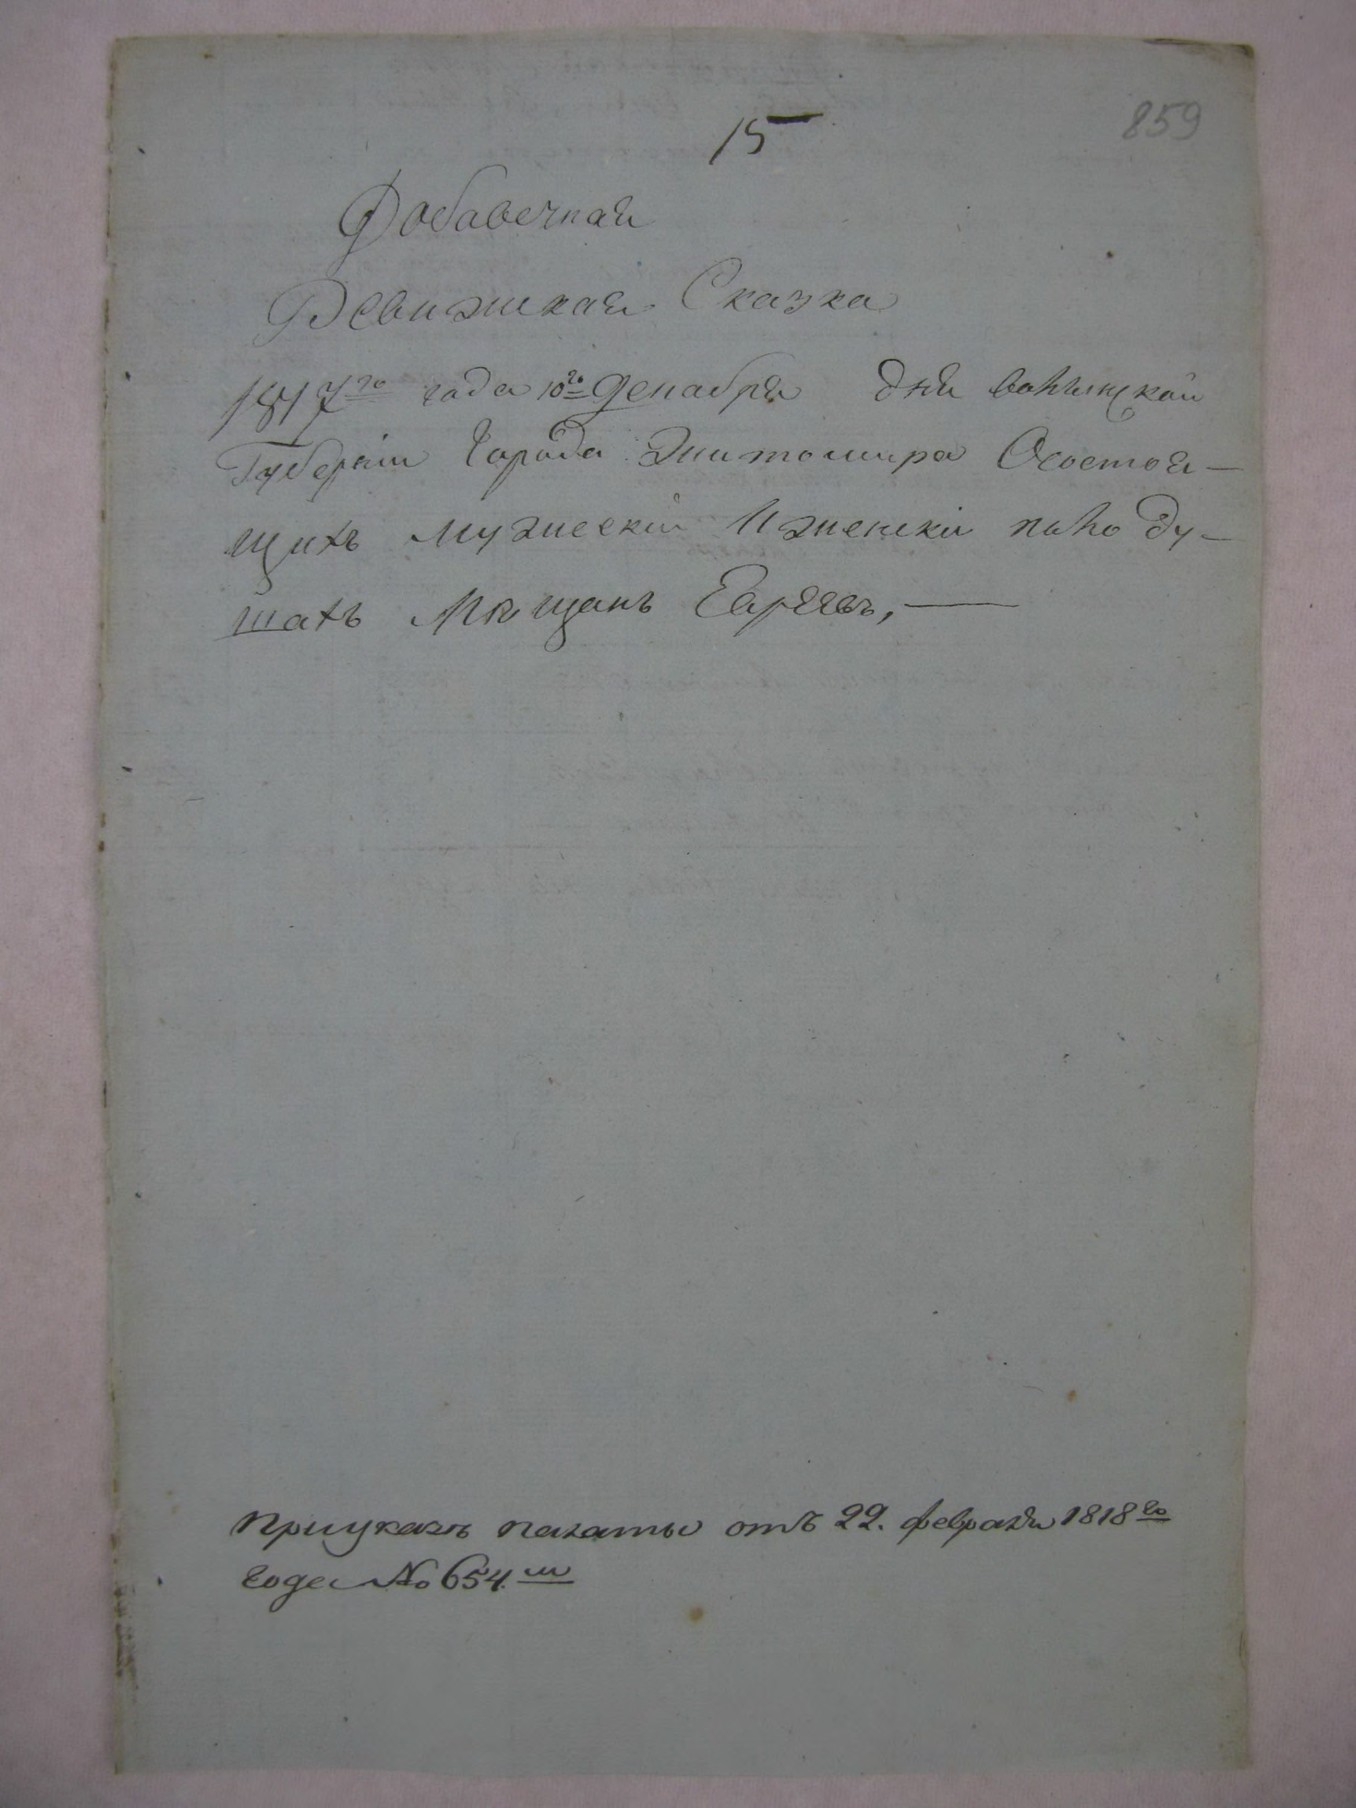 859
15
Добавечная
Ревижская Сказка
1817го года 10го Декабря дня волынской
Губерніи Города Житомира Осостоя-
щихъ мужескій Иженскі пола ду-
шахъ Мѣщанъ Евреевъ,
Приуказѣ палаты отъ 22. февраля 1818го
Года № 654.м